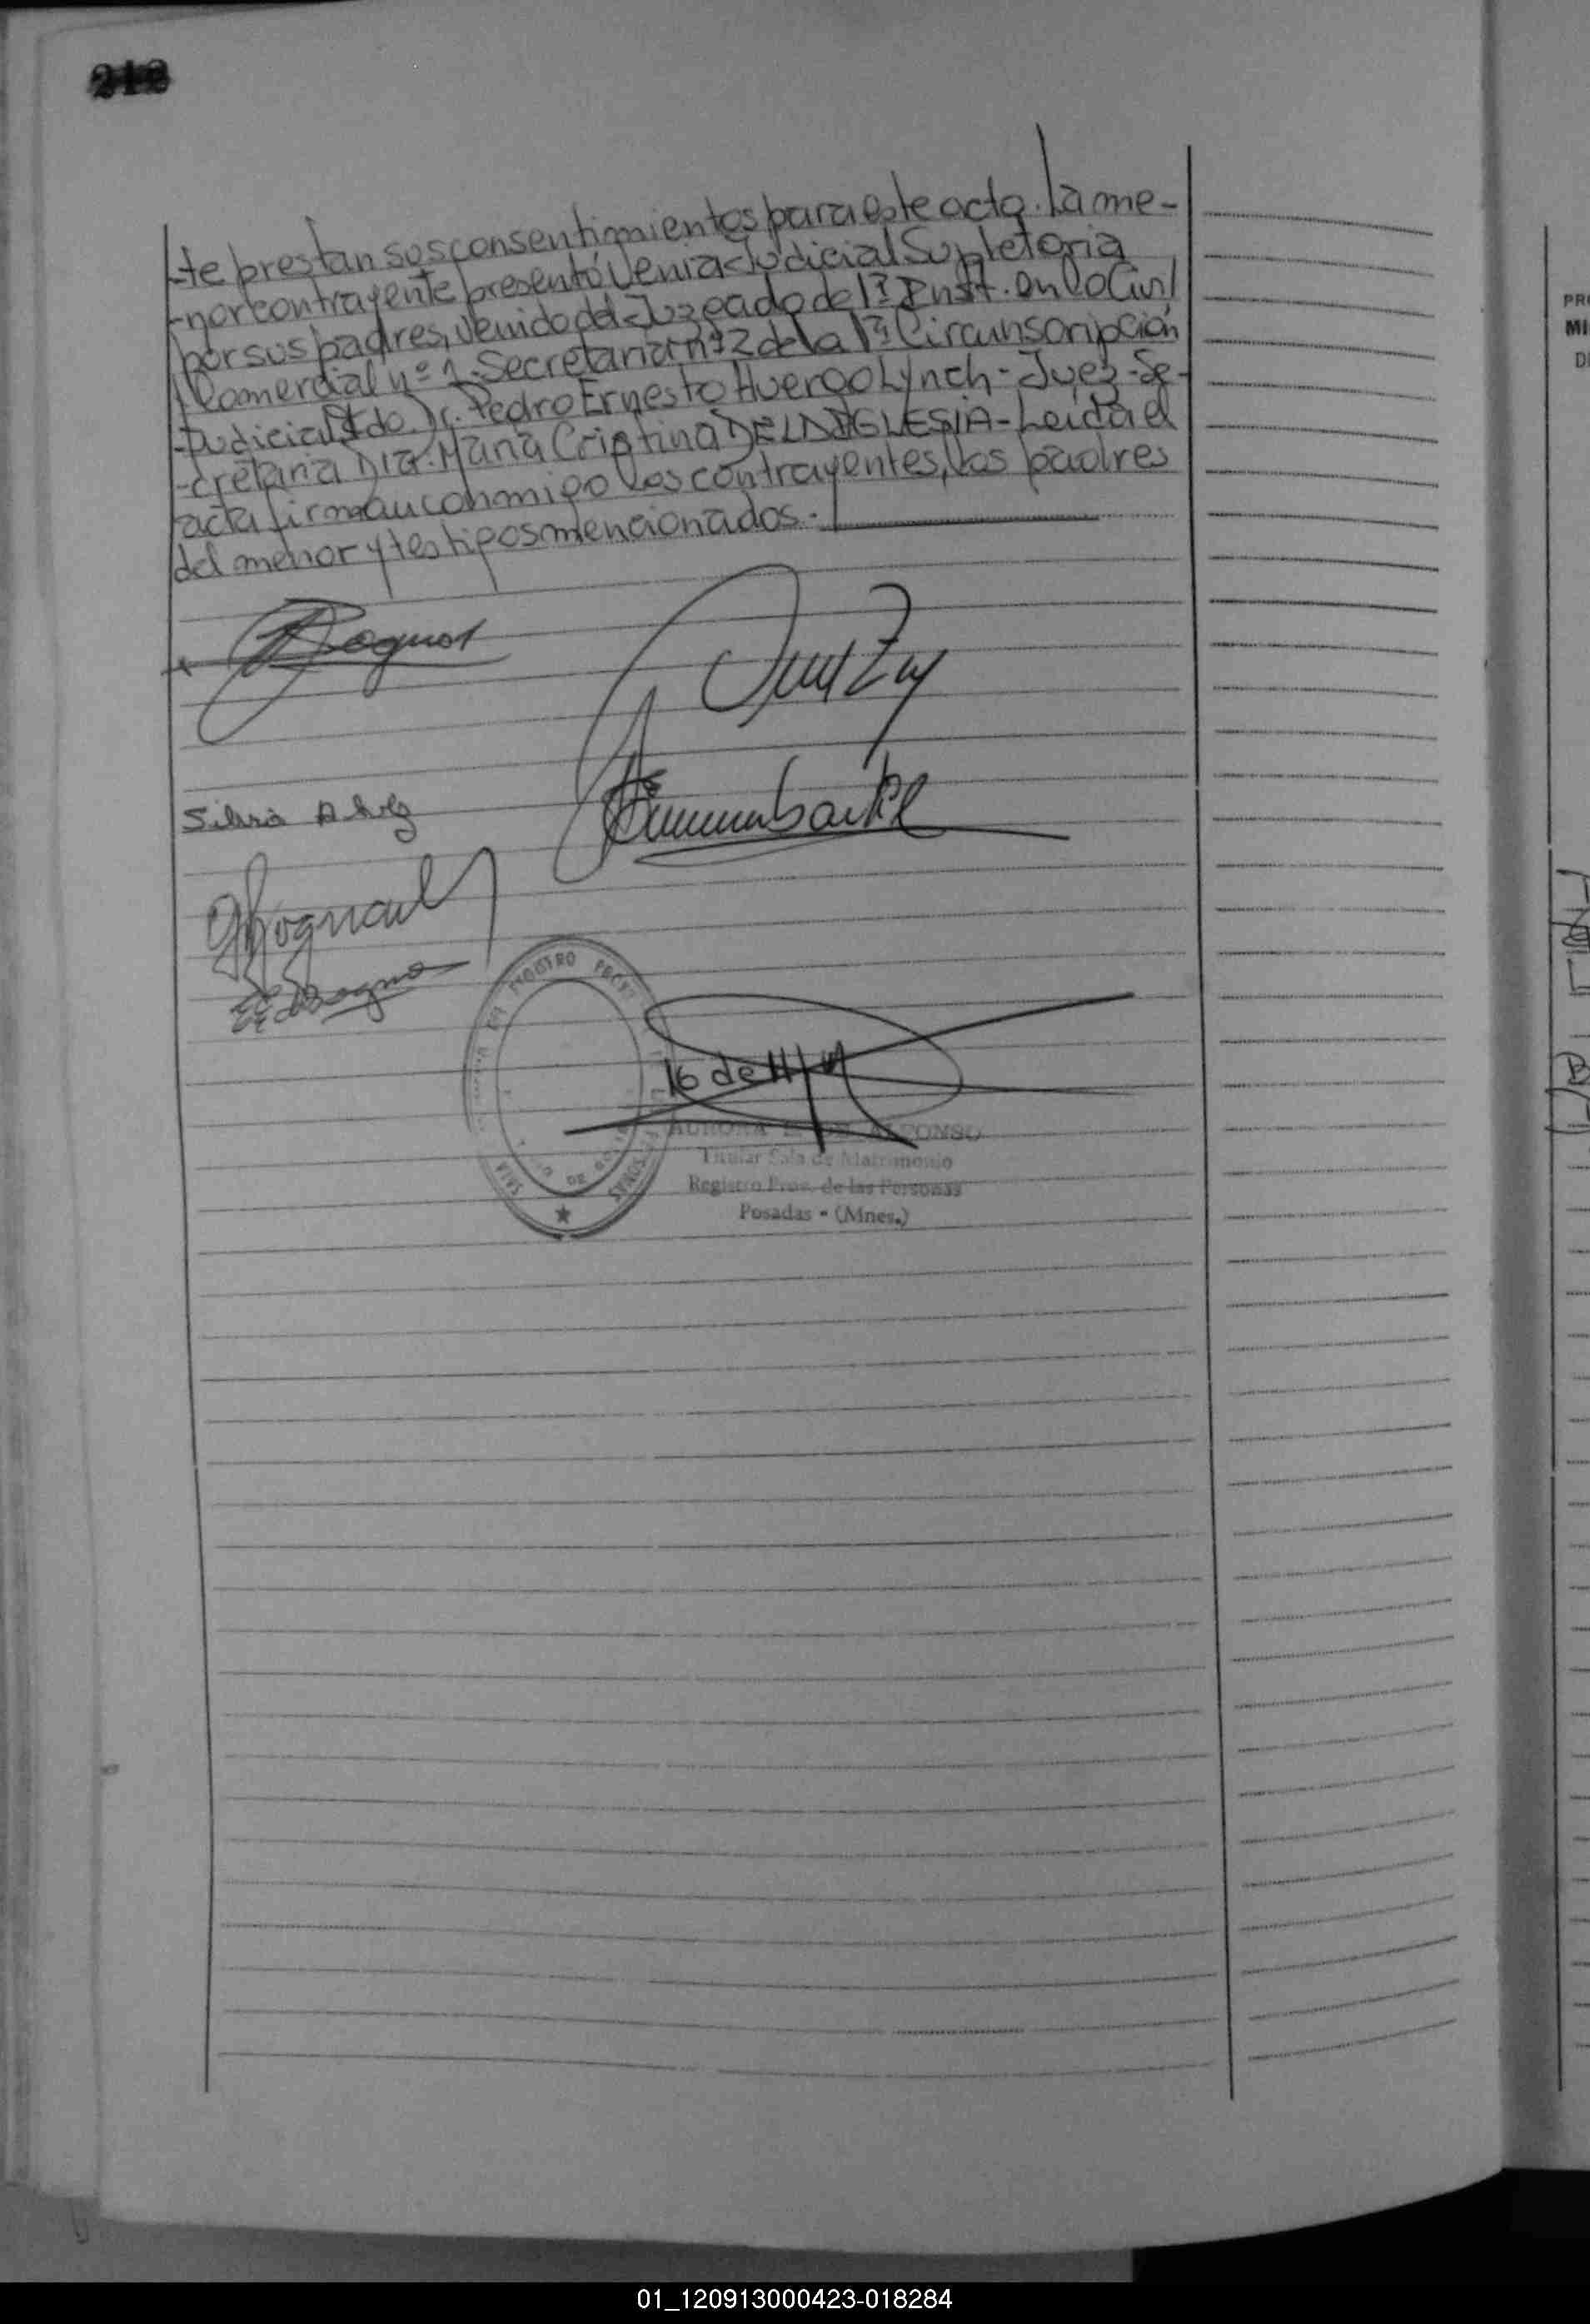 212
-te prestan sus consentimientos para este acto. La me-
-nor contrayente presentó Venia Judicial Supletoria
por sus padres, venido del Juzgado de 1ª Inst. en lo Civil
y Comercial nº 1. Secretaria nº 2 de la 1ª Circunscripción
Judicial Fdo. Dr. Pedro Ernesto Huergo Lynch - Juez - Se-
-cretaria Dra. María Cristina DE LA IGLESIA - Leída el
acta firman conmigo los contrayentes, los padres
del menor y testigos mencionados.-
Silvia
16 de
AURORA E. DE ALFONSO
Titular Sala de Matrimonio
Registro Prov. de las Personas
Posadas - (Mnes.)
PR
MI
D
01_120913000423-018284